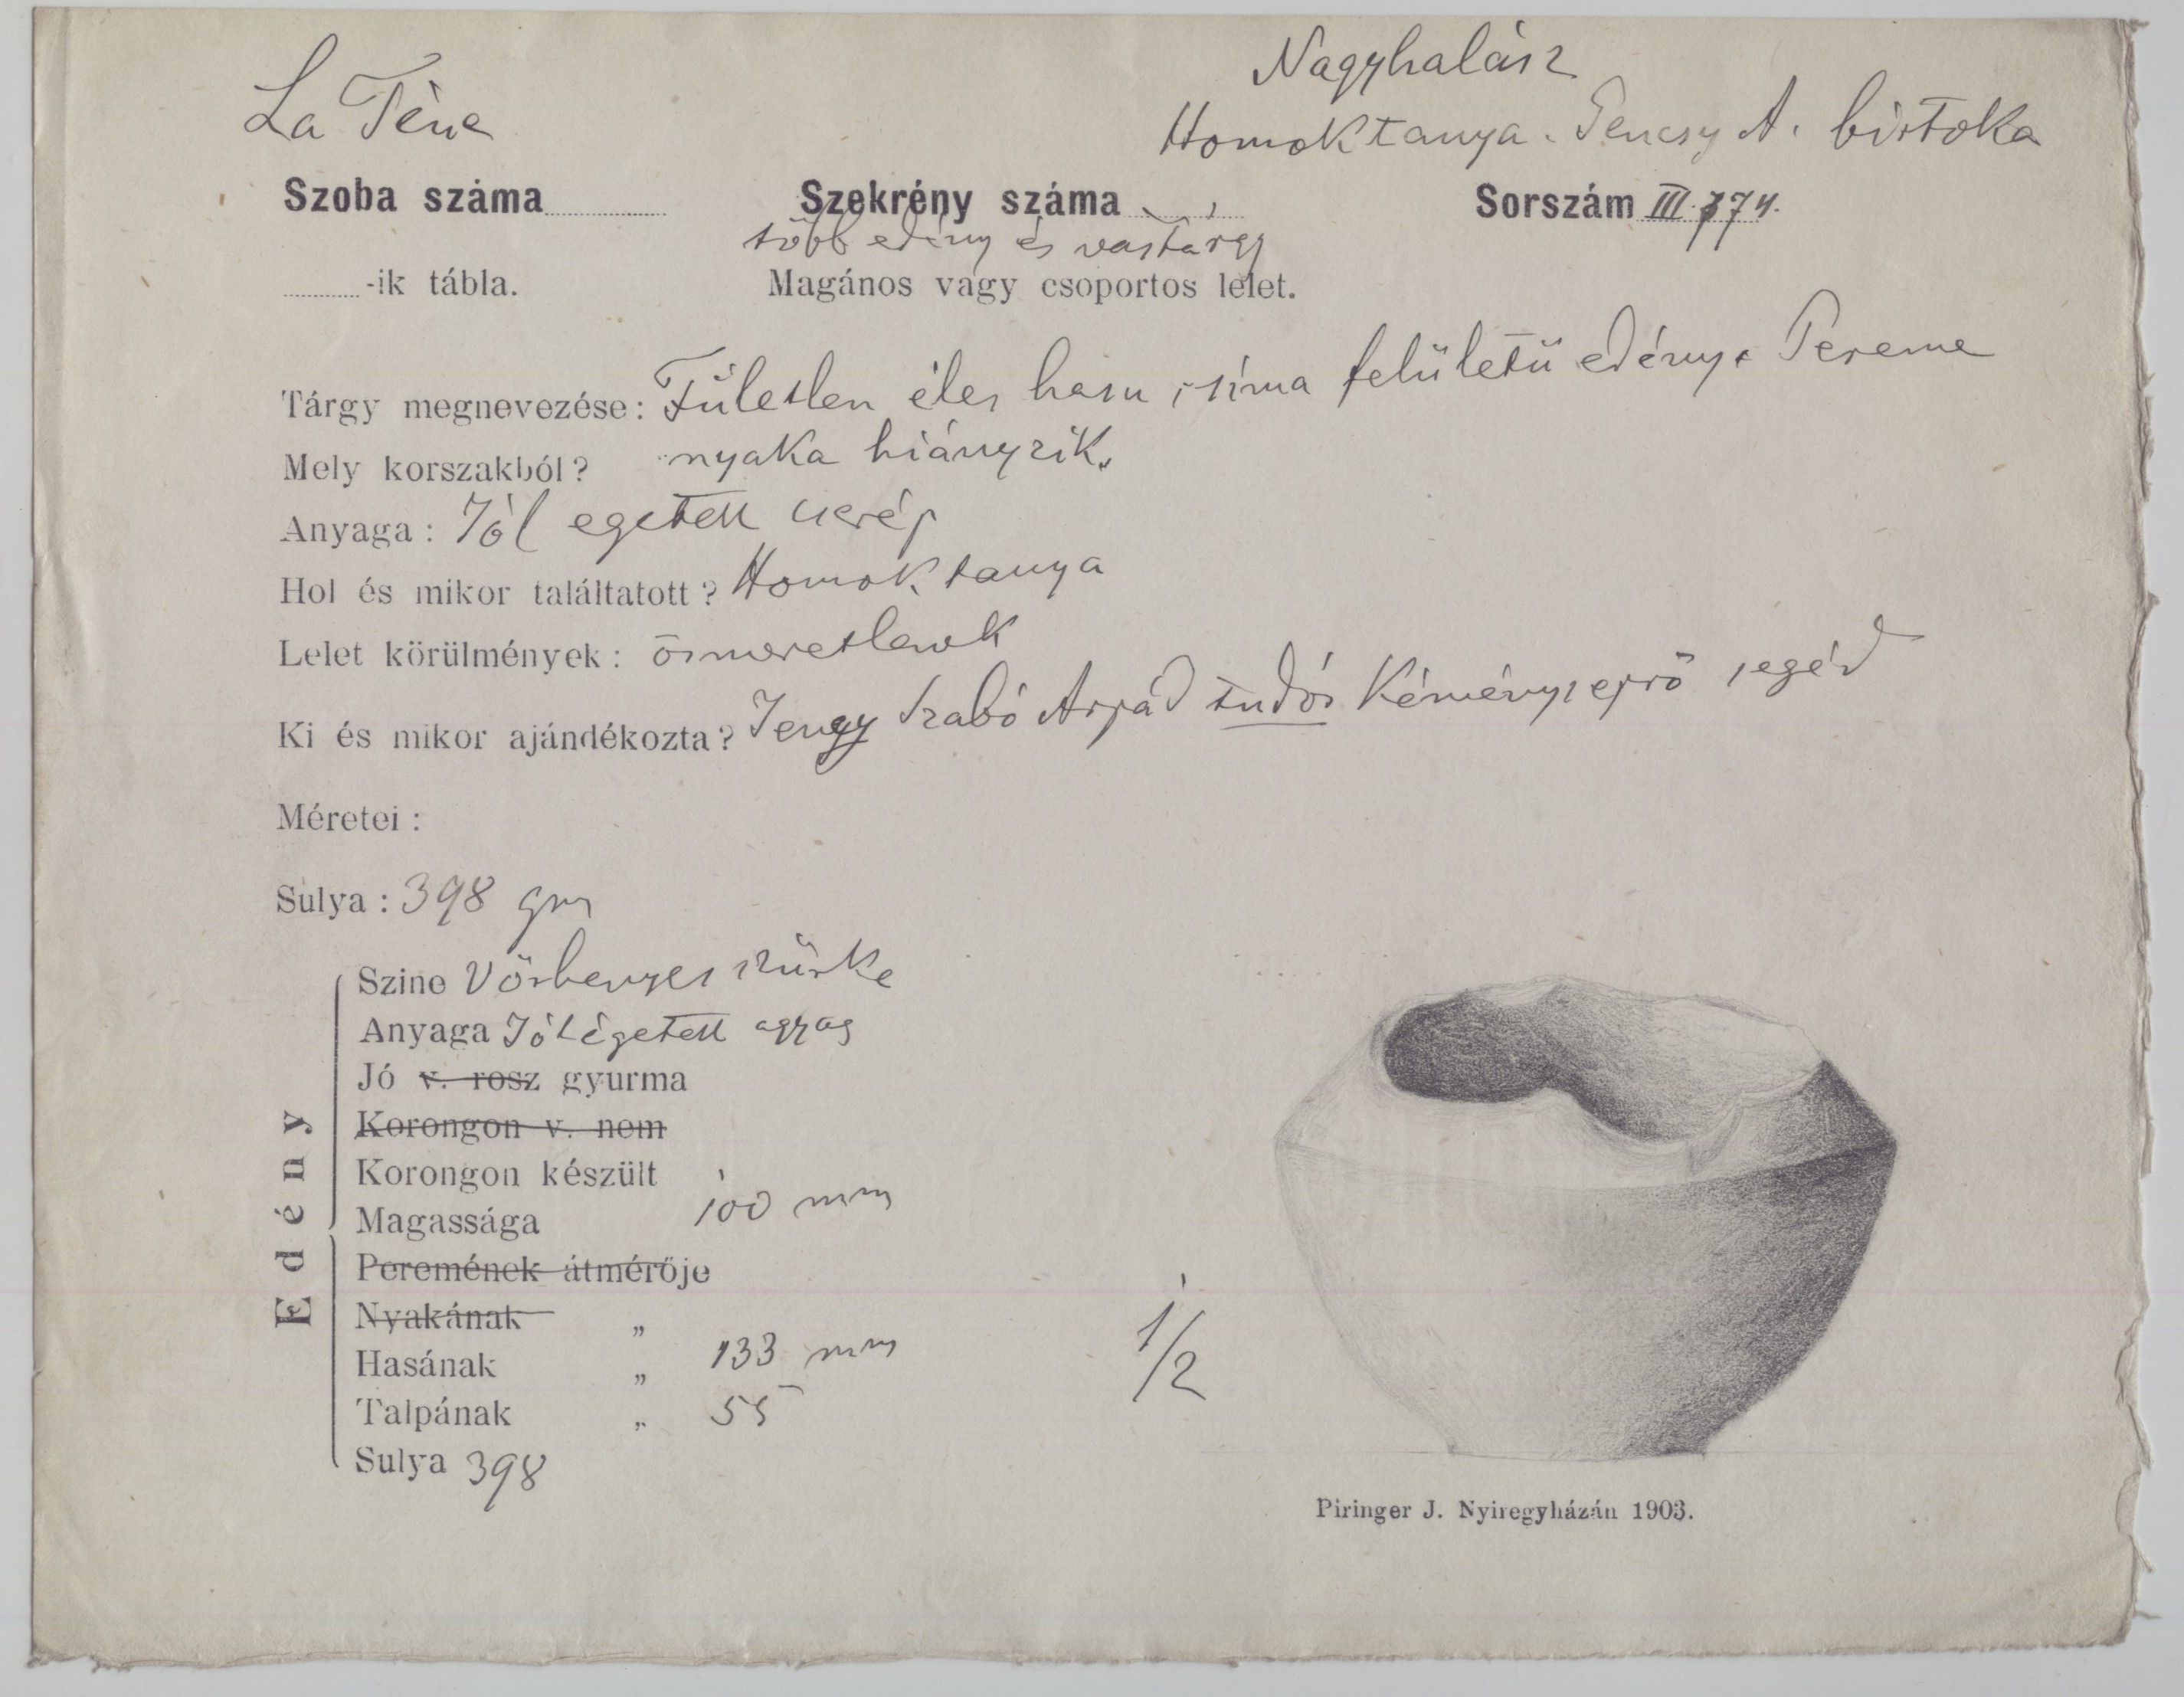 La Tène
Nagyhalász
Homoktanya. Gencsy A. birtoka
Szoba száma
Szekrény száma
Sorszám III. 774.
több edény és vastárgy
-ik tábla.
Magános vagy csoportos lelet.
Tárgy megnevezése: Fületlen éles hasu, síma felületü edény. Pereme
Mely korszakból? nyaka hiányzik.
Anyaga: Jól egetett cserép
Hol és mikor találtatott? Homoktanya
Lelet körülmények: ösmeretlenek
Ki és mikor ajándékozta? Szabó Arpád tudós Kéményseprö segéd
Méretei:
Sulya: 398 gm
Edény
Szine Vörhenyes szürke
Anyaga Jól égetett agyag
Jó v. rosz gyurma
Korongon v. nem
Korongon készült
Magassága 100 mm
Peremének átmérője
Nyakának „
Hasának „ 133 mm
Talpának „ 55
Sulya 398
1/2
Piringer J. Nyiregyházán 1903.